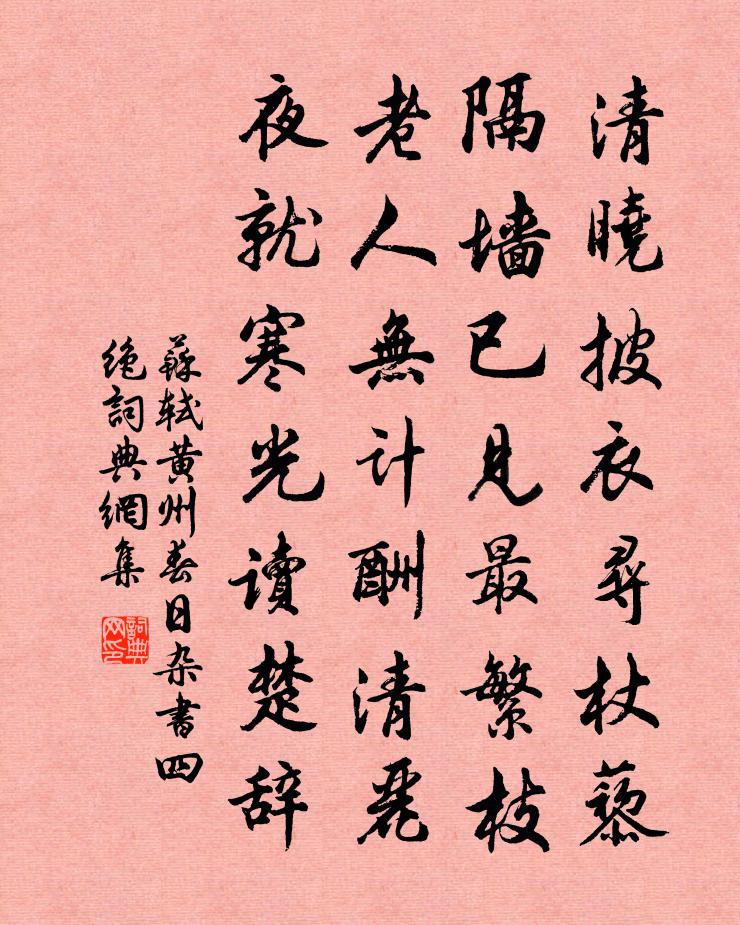 清曉披衣尋杖藜
隔墙已見最繁枝
老人無計酬清麗
夜就寒光讀楚辞
蘇轼黄州春日杂書四
绝詞典網集
詞典網印